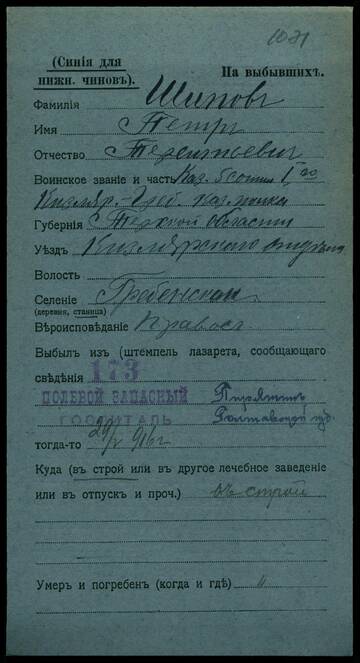 1071
(Синія для
нижн. чиновъ).
На выбывшихъ.
Фамилія Шиповъ
Имя Петръ
Отчество Терентьевич
Воинское званіе и часть Каз. 5 сотни 1го
Кизляр.-Греб. каз. полка
Губернія Терской области
Уѣздъ Кизлярскаго отдѣла
Волость
Селеніе Гребенская
(деревня, станица)
Вѣроисповѣданіе Правосл
Выбылъ изъ (штемпель лазарета, сообщающаго
свѣдѣнія
173
ПОЛЕВОЙ ЗАПАСНЫЙ
ГОСПИТАЛЬ
Пирятинъ
Полтавской губ.
тогда-то 916 г
Куда (въ строй или въ другое лечебное заведеніе
или въ отпускъ и проч.) въ строй
Умеръ и погребенъ (когда и гдѣ) "